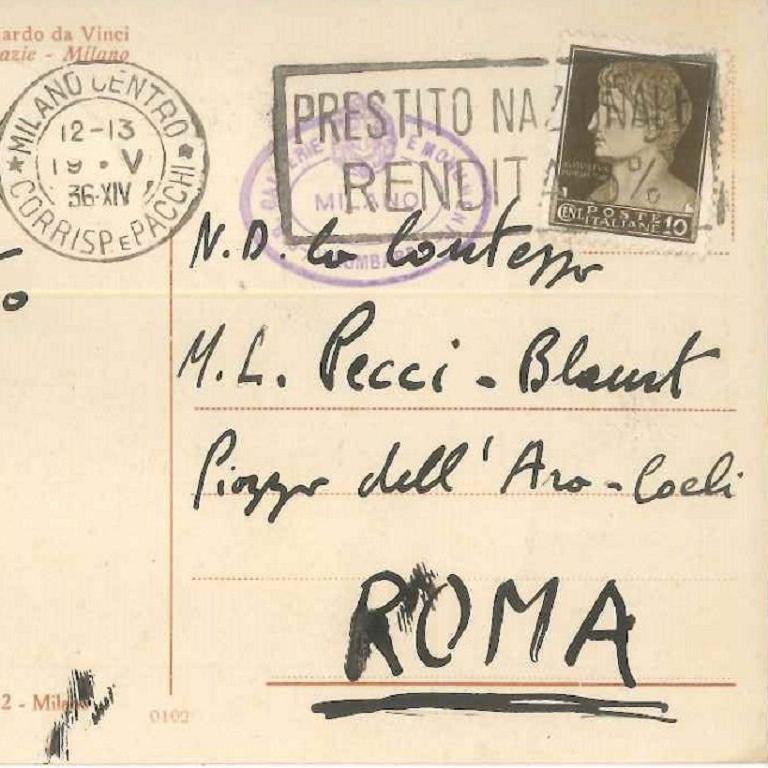 ardo da Vinci
azie - Milano
MILANO CENTRO
12-13
19 • V
36-XIV
CORRISP E PACCHI
PRESTITO NAZIONALE
RENDITA 5%
MILANO
CENT. POSTE 10
ITALIANE
o
N. D. la Contessa
M. L. Pecci - Blaunt
Piazza dell' Ara - Coeli
ROMA
2 - Milano
0102